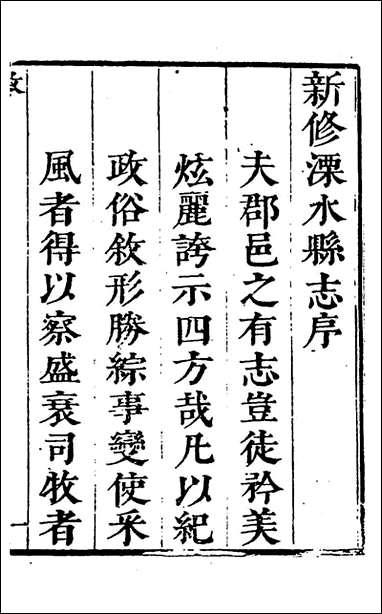 新修溧水縣志序
夫郡邑之有志豈徒矜美
炫麗誇示四方哉凡以紀
政俗敘形勝綜事變使采
風者得以察盛衰司牧者